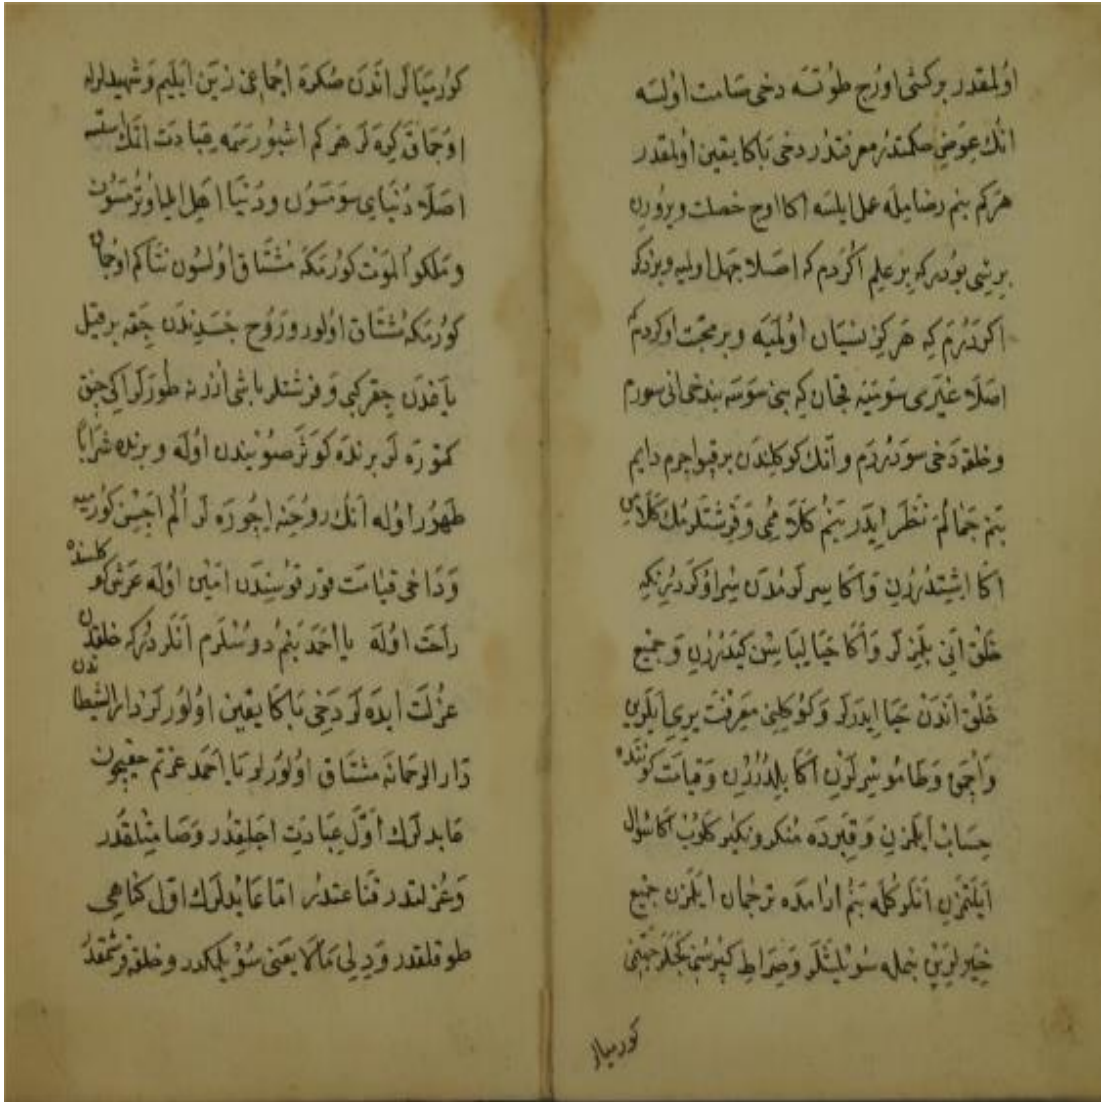 اوُلمقدر بركشى اورج طوُتسه دخى صامت اولسه
انك عوض حكمتدر معرفتدر دخى باكا يقين اولمقدر
هركم بنم رضامله عمل ايلسه اكا اوج خصلت ويرورن
برسى بودركه بر علم اكردم كه اصلا جهل اولميه وبر ذكر
اكردرم كه هركز نسيان اوُلميه وبر محبت اوكردم
اصلا غيرى سوميه قچان كه بنى سوسه بندخى انى سورم
وخلقه دخى سودررم وانك كوكلندن بر قپو اچرم دايم
بنم جمالم نظر ايدر بنم كلاممى وفرشتلرمك كلامن
اكا اشتدررن واكا سرلرمدن سر اوكردرن كه
خلق انى بلمزلر واكا حيا لباسن كيدررن وجميع
خلق اندن حيا ايدرلر وكوكلنى معرفت يرى ايلرن
واچمق وطامو سرلرن اكا بلدررن وقيامت كوننده
حساب ايلمزن وقبرده منكر ونكير كلوب اكا سوال
ايلتمزن انلركله بنم ارامده ترجمان ايلمزن جميع
خبرلرين بنمله سويلشلر وصراط كپرسن كچلر جهنمى
كورميالر
كورميالر اندن صكره اچماغى زين ايليم وشهيدلرله
اوچماق كره لر هركم اشبو رسمه عبادت اتمك استسه
اصلا دنياى سومسون ودنيا اهل ايله اوترمسون
وملكو الموت كورمكه مشتاق اولسون نتاكم اوچمان
كورمكه مشتاق اولور وروح جسدندن چقه بر قيل
ياغدن چقر كبى وفرشتلر باشى اوزرنه طورلر اكى جنق
كتوره لر برنده كوثر صويندن اوله وبرنده شرابا
طهور اوله انك روحنه ايچوره لر الم اجيسن كورميه
وداخى قيامت قورقوسندن امين اوله عرش كولكسنده
راحت اوله يا احمد بنم دوستلرم انلردركه خلقدن
عزلت ايده لر دخى باكا يقين اولورلر دار الشيطاندن
دار الرحمانه مشتاق اولورلر يا احمد عزتم حقيچون
عابدلرك اول عبادت اچلقدر وصامتلقدر
وعزلتدر قناعتدر اما عابدلرك اول كناهى
طوقلقدر ودلى مالايعنى سويلمكدر وخلقه قرشمقدر